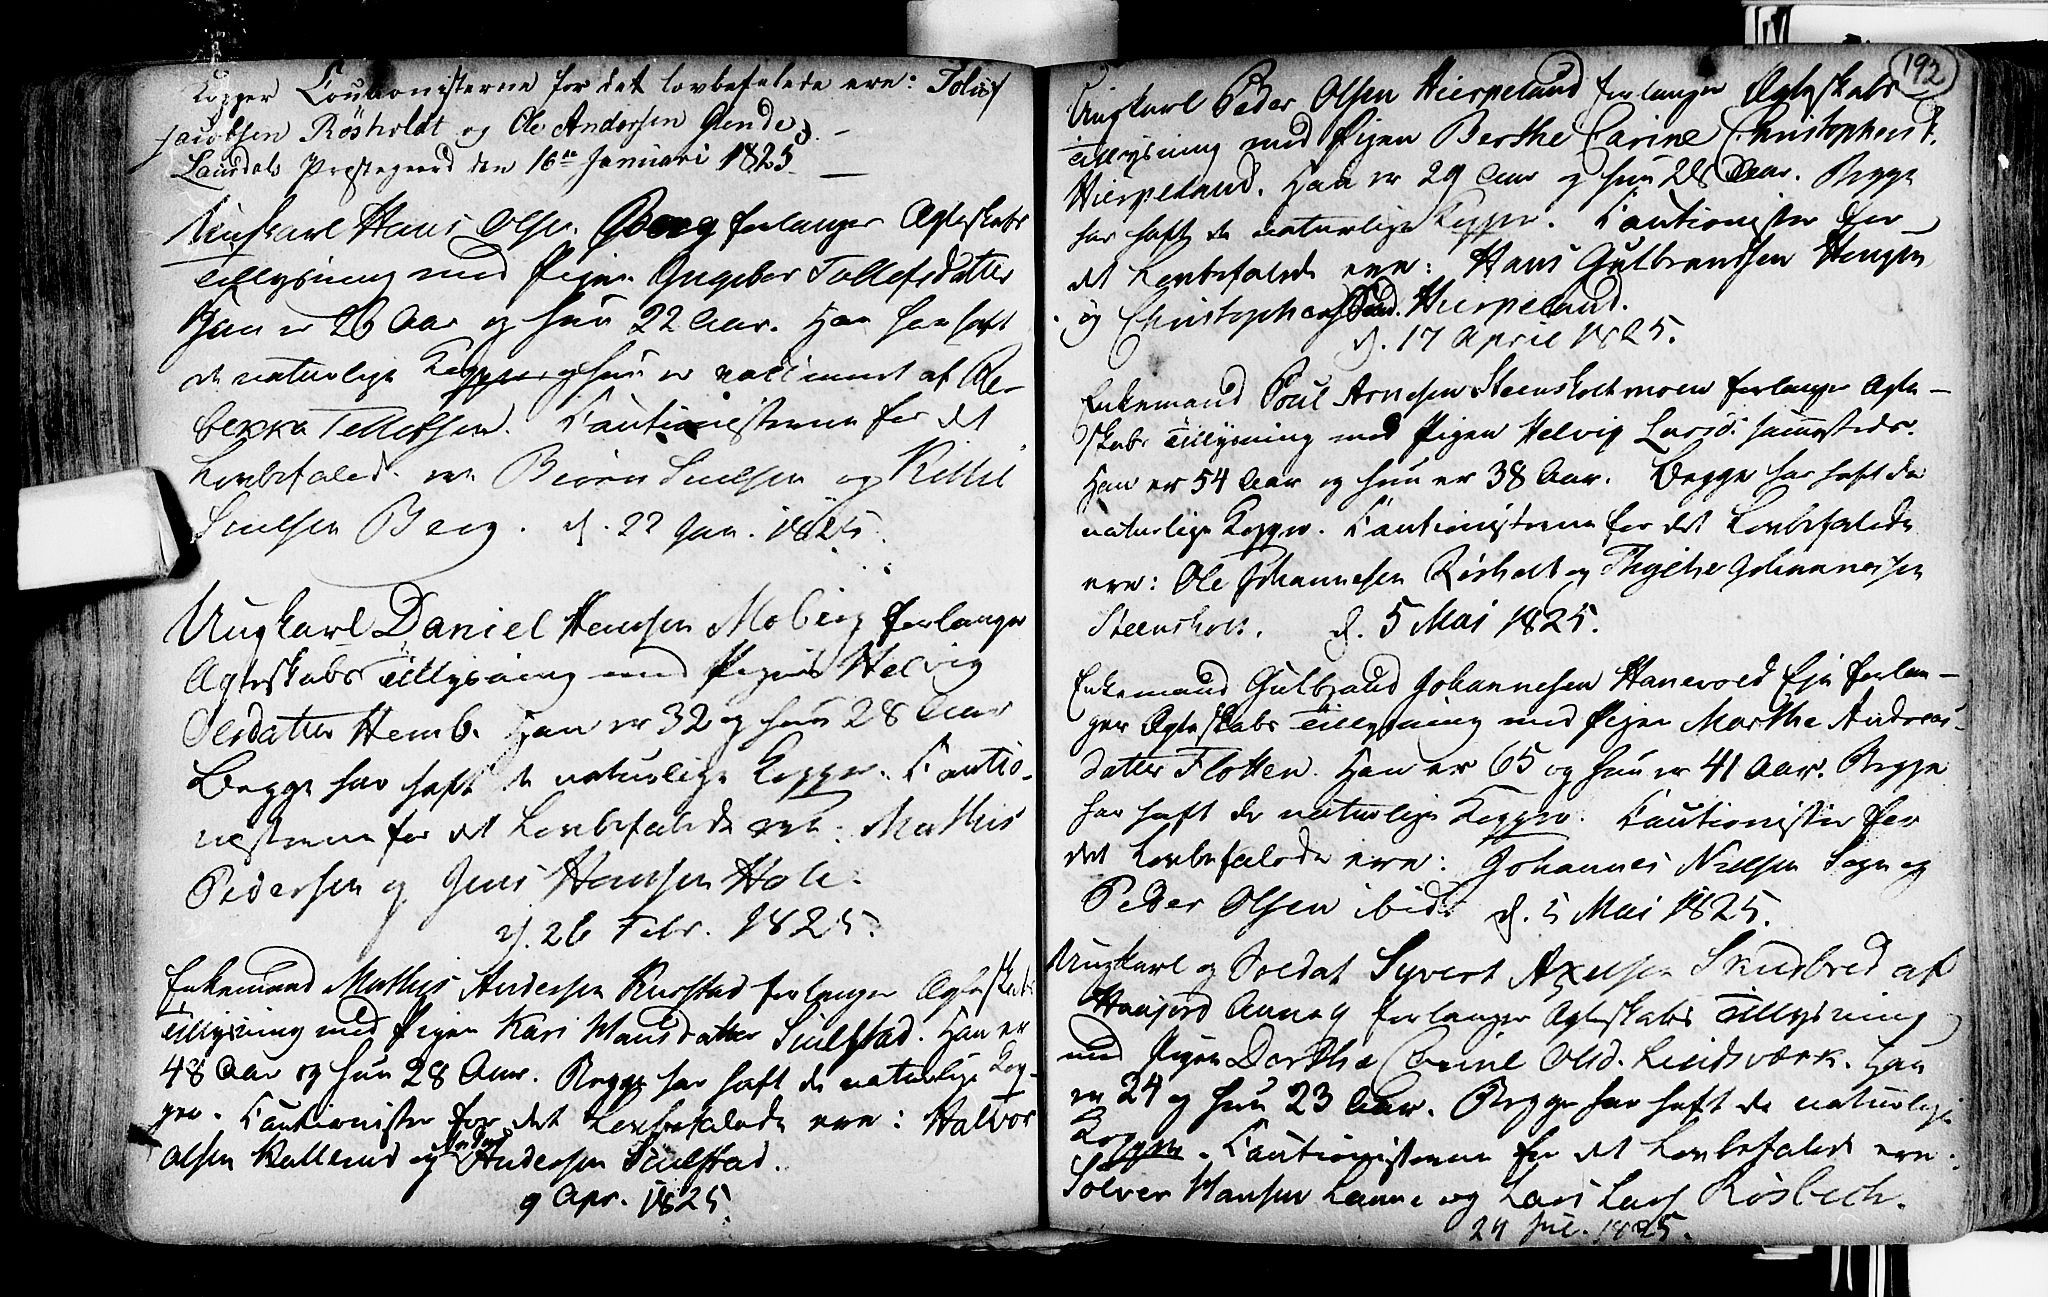 Kopper Coutionisterne for det lovbefalede ere: Tolluf
Jacobsen Rösholdt og Ole Andersen Gunde
Laurdals Præstegaard den 16de Januari 1825.
Ungkarl Hans Olsen Berg forlanger Ægteskabs
Tillysning med Pigen Ingebor Tollefsdatter
Han er 26 Aar og hun 22 Aar. Han har haft
de naturlige Kopper og hun er vaccineret af Re-
bekka Tollefsen. Cautionisterne for det
Lovbefalede ere Biørn Siulsen og Kittil
Siulsen Berg. d. 22 Jan. 1825.
Ungkarl Daniel Hansen Moberg forlanger
Ægteskabs Tillysning med Pigen Helvig
Olsdatter Hemb. Han er 32 og hun 28 Aar
Begge har haft de naturlige Kopper. Cautio-
nisterne for det Lovbefalede ere: Mathis
Pedersen og Jens Hansen Hole.
d. 26 Febr. 1825.
Enkemand Mathis Andersen Rustad forlanger Ægteskabs
Tillysning med Pigen Kari Hansdatter Siulstad. Han er
48 Aar og hun 28 Aar. Begge har haft de naturlige Kop-
per. Cautionister for det Lovbefalede ere: Halvor
Olsen Kallerud og Anders Andersen Siulstad.
9 Apr. 1825
192
Ungkarl Peder Olsen Hierpeland forlanger Ægteskabs
Tillysning med Pigen Berthe Carine Christophersd.
Hierpeland. Han er 29 Aar og hun 28 Aar. Begge
har haft de naturlige Kopper. Cautionister for
det Lovbefalede ere: Hans Gulbrandsen Hengen
og Christopher Hierpeland.
d. 17 April 1825.
Enkemand Poul Arnesen Steensholtmoen forlanger Ægte-
skabs Tillysning med Pigen Helvig Larsd. sammesteds.
Han er 54 Aar og hun er 38 Aar. Begge har haft de
naturlige Kopper. Cautionisterne for det Lovbefalede
ere: Ole Johannesen Rösholt og Thythe Johannessen
Steensholt. d. 5 Mai 1825.
Enkemand Gulbrand Johannesen Hanevold Eje forlan-
ger Ægteskabs Tillysning med Pigen Marthe Andreas-
datter Flotten. Han er 65 og hun er 41 Aar. Begge
har haft de naturlige Kopper. Cautionister for
det Lovbefalede ere: Johannes Nielsen Teige og
Peder Olsen ibid. d. 5 Mai 1825.
Ungkarl og Soldat Syvert Axelsen Skudbred af
Annag forlanger Ægteskabs Tillysning
med Pigen Dorthe Carine Olsd. Lindsværk. Han
er 24 og hun 23 Aar. Begge har haft de naturlige
Kopper. Cautionisterne for det Lovbefalede ere:
Sölver Hansen Lanne og Lars Lars Rösbech.
24 Jul. 1825.